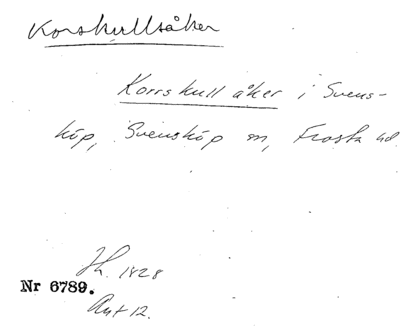 Korskullsåker
Korrskull åker i Svens-
köp, Svensköp sn, Frosta hd
Jh. 1828
Nr 6789.
Akt 12.